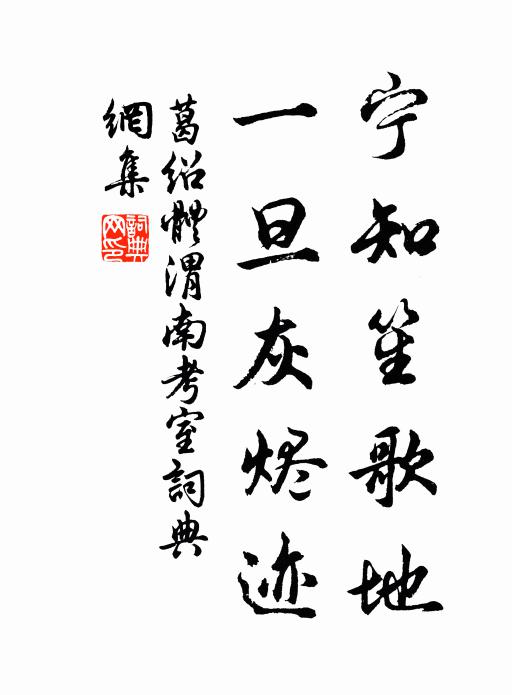 宁知笙歌地
一旦灰烬迹
葛绍體渭南考室詞典
網集
詞典网印